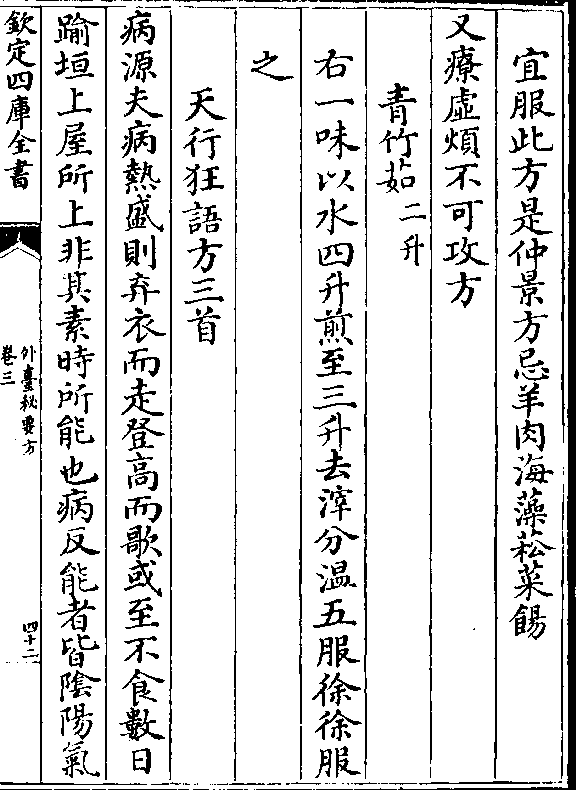 宜服此方是仲景方忌羊肉海藻菘菜餳
又療虛煩不可攻方
青竹茹二升
右一味以水四升煎至三升去滓分温五服徐徐服
之
天行狂語方三首
病源夫病熱盛則弃衣而走登高而歌或至不食數日
踰垣上屋所上非其素時所能也病反能者皆隂陽氣
欽定四庫全書
外臺秘要方
卷三
四十二